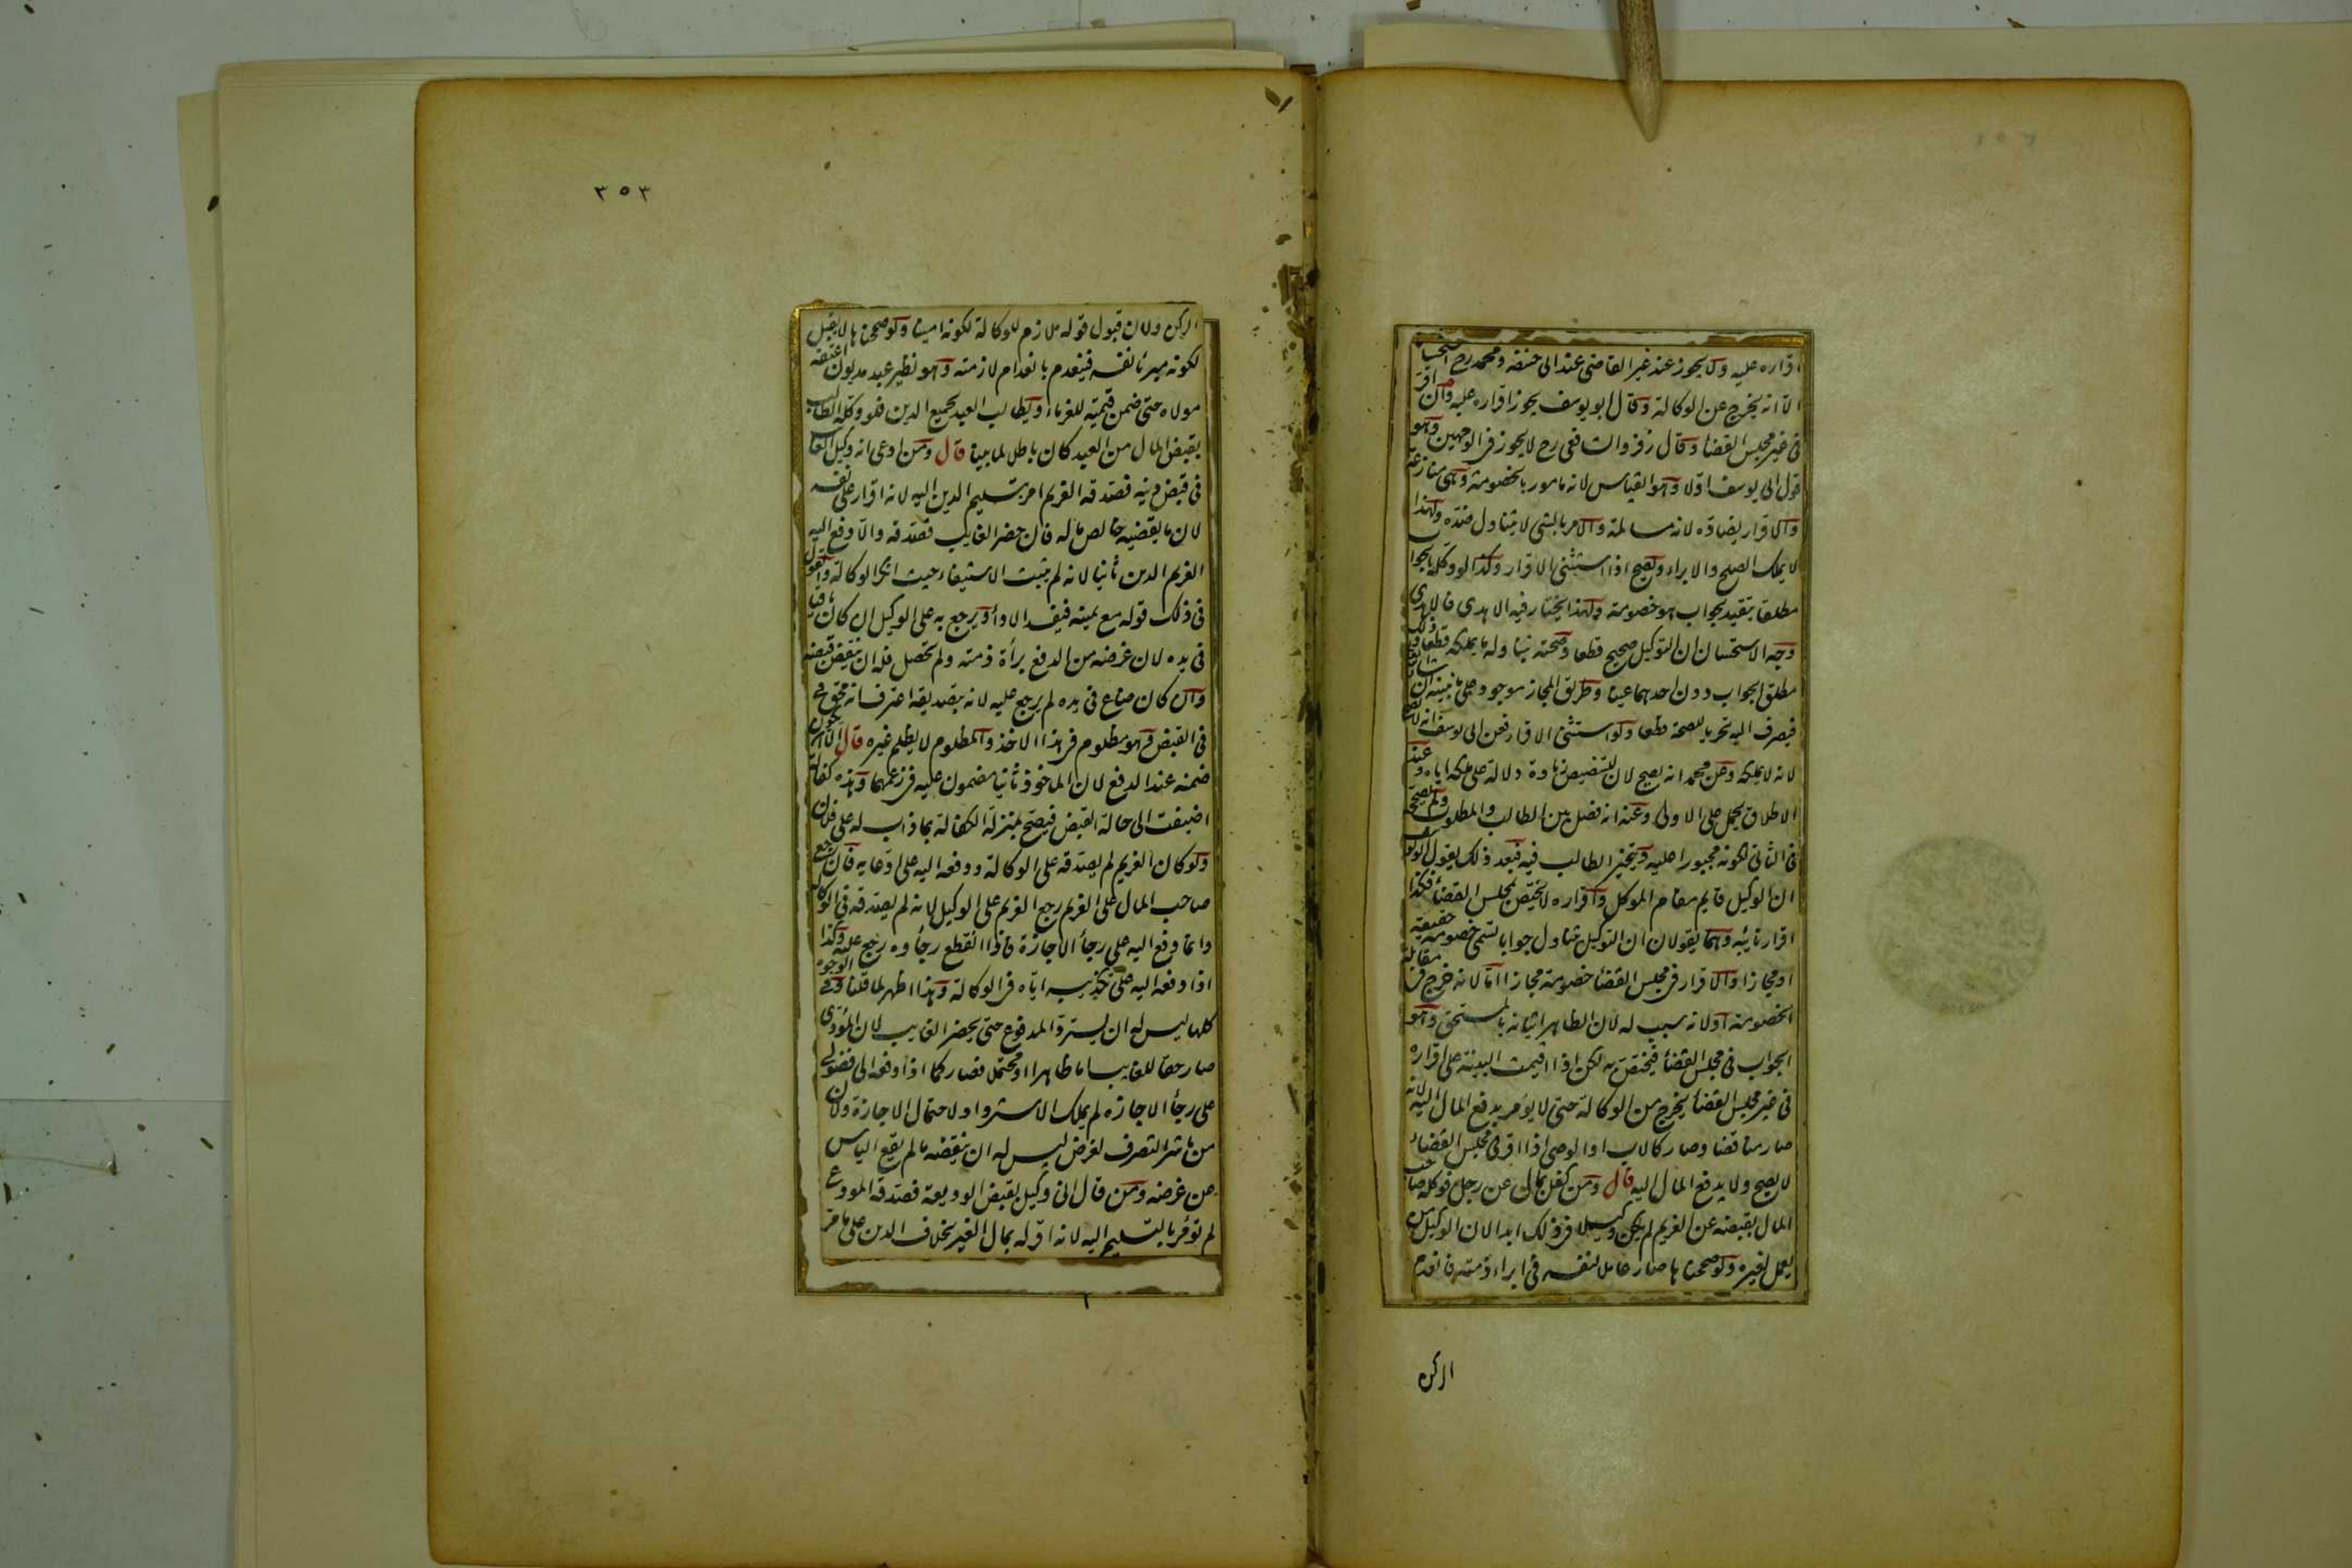 اقراره عليه ولا يجوز عند غير القاضى عند ابى حنيفة ومحمد رح استحسانا
الا انه يخرج عن الوكالة وقال ابو يوسف يجوز اقراره عليه وان اقر
فى غير مجلس القضا وقال زفر والشافعى رح لا يجوز فى الوجهين وهو
قول ابى يوسف اولا وهو القياس لانه مامور بالخصومة وهى منازعة
والاقرار يضاده لانه مسالمة والامر بالشى لا يتناول ضده ولهذا
لا يملك الصلح والابراء ويصح اذا استثنى الاقرار وكذا لو وكله بالجواب
مطلقا يتقيد بجواب هو خصومة ولهذا يختار فيه الاهدى فالاهدى
وجه الاستحسان ان التوكيل صحيح قطعا وصحته بتناوله ما يملكه قطعا وذلك
مطلق الجواب دون احدهما عينا وطريق المجاز موجود على ما نبينه ان شا الله تعالى
فيصرف اليه تحريا للصحة قطعا ولو استثنى الاقرار فعن ابى يوسف انه لا يصح
لانه لا يملكه وعن محمد انه يصح لان للتنصيص زيادة دلالة على ملكه اياه وعند
الاطلاق يحمل على الاولى وعنه انه فصل بين الطالب والمطلوب ولم يصححه
فى الثانى لكونه مجبورا عليه ويتخير الطالب فيه فبعد ذلك يقول ابو يوسف
ان الوكيل قايم مقام الموكل واقراره لا يختص بمجلس القضا فكذا
اقرار نائبه وهما يقولان ان التوكيل يتناول جوابا يسمى خصومة حقيقة
او مجازا والاقرار فى مجلس القضا خصومة مجازا اما لانه خرج فى مقابلة
الخصومة او لانه سبب له لان الظاهر اتيانه بالمستحق وهو
الجواب فى مجلس القضا فيختص به لكن اذا اقيمت البينة على اقراره
فى غير مجلس القضا يخرج من الوكالة حتى لا يؤمر بدفع المال اليه لانه
صار مناقضا وصار كالاب او الوصى اذا اقر فى مجلس القضا
لا يصح ولا يدفع المال اليه قال ومن كفل بمال عن رجل فوكله صاحب
المال بقبضه عن الغريم لم يكن وكيلا فى ذلك ابدا لان الوكيل من
يعمل لغيره ولو صححناها صار عاملا لنفسه فى ابراء ذمته فانعدم
الركن
٣٥٣
الركن ولان قبول قوله ملازم للوكالة لكونه امينا ولو صححناها لا يقبل
لكونه مبرئا نفسه فينعدم بانعدام لازمته وهو نظير عبد مديون اعتقه
مولاه حتى ضمن قيمته للغرماء ويطالب العبد بجميع الدين فلو وكله الطالب
بقبض المال من العبد كان باطلا لما بينا قال ومن ادعى انه وكيل الغايب
فى قبض دينه فصدقه الغريم امر بتسليم الدين اليه لانه اقرار على نفسه
لان ما يقضيه خالص ماله فان حضر الغايب فصدقه والا دفع اليه
الغريم الدين ثانيا لانه لم يثبت الاستيفاء حيث انكر الوكالة والقول
فى ذلك قوله مع يمينه فيفسد الاداء ويرجع به على الوكيل ان كان باقيا
فى يده لان غرضه من الدفع براة ذمته ولم تحصل فله ان ينقض قبضه
وان كان ضاع فى يده لم يرجع عليه لانه بتصديقه اعترف انه محق
فى القبض وهو مظلوم فى هذا الاخذ والمظلوم لا يظلم غيره قال الا ان يكون
ضمنه عند الدفع لان الماخوذ ثانيا مضمون عليه فى زعمهما وهذه كفالة
اضيفت الى حالة القبض فيصح بمنزلة الكفالة بما ذاب له على فلان
ولو كان الغريم لم يصدقه على الوكالة ودفعه اليه على ادعايه فان رجع
صاحب المال على الغريم رجع الغريم على الوكيل لانه لم يصدقه فى الوكالة
وانما دفع اليه على رجأ الاجازة فاذا انقطع رجاؤه رجع عليه وكذا
اذا دفعه اليه على تكذيبه اياه فى الوكالة وهذا اظهر لما قلنا وفى الوجوه
كلها ليس له ان يسترد المدفوع حتى يحضر الغايب لان المؤدى
صار حقا للغايب اما ظاهرا او محتملا فصار كما اذا دفعه الى فضولى
على رجأ الاجازة لم يملك الاسترداد لاحتمال الاجازة ولان
من باشر التصرف لغرض ليس له ان ينقضه ما لم يقع الياس
عن غرضه ومن قال انى وكيل بقبض الوديعة فصدقه المودع
لم تؤمر بالتسليم اليه لانه اقر له بمال الغير بخلاف الدين على ما مر